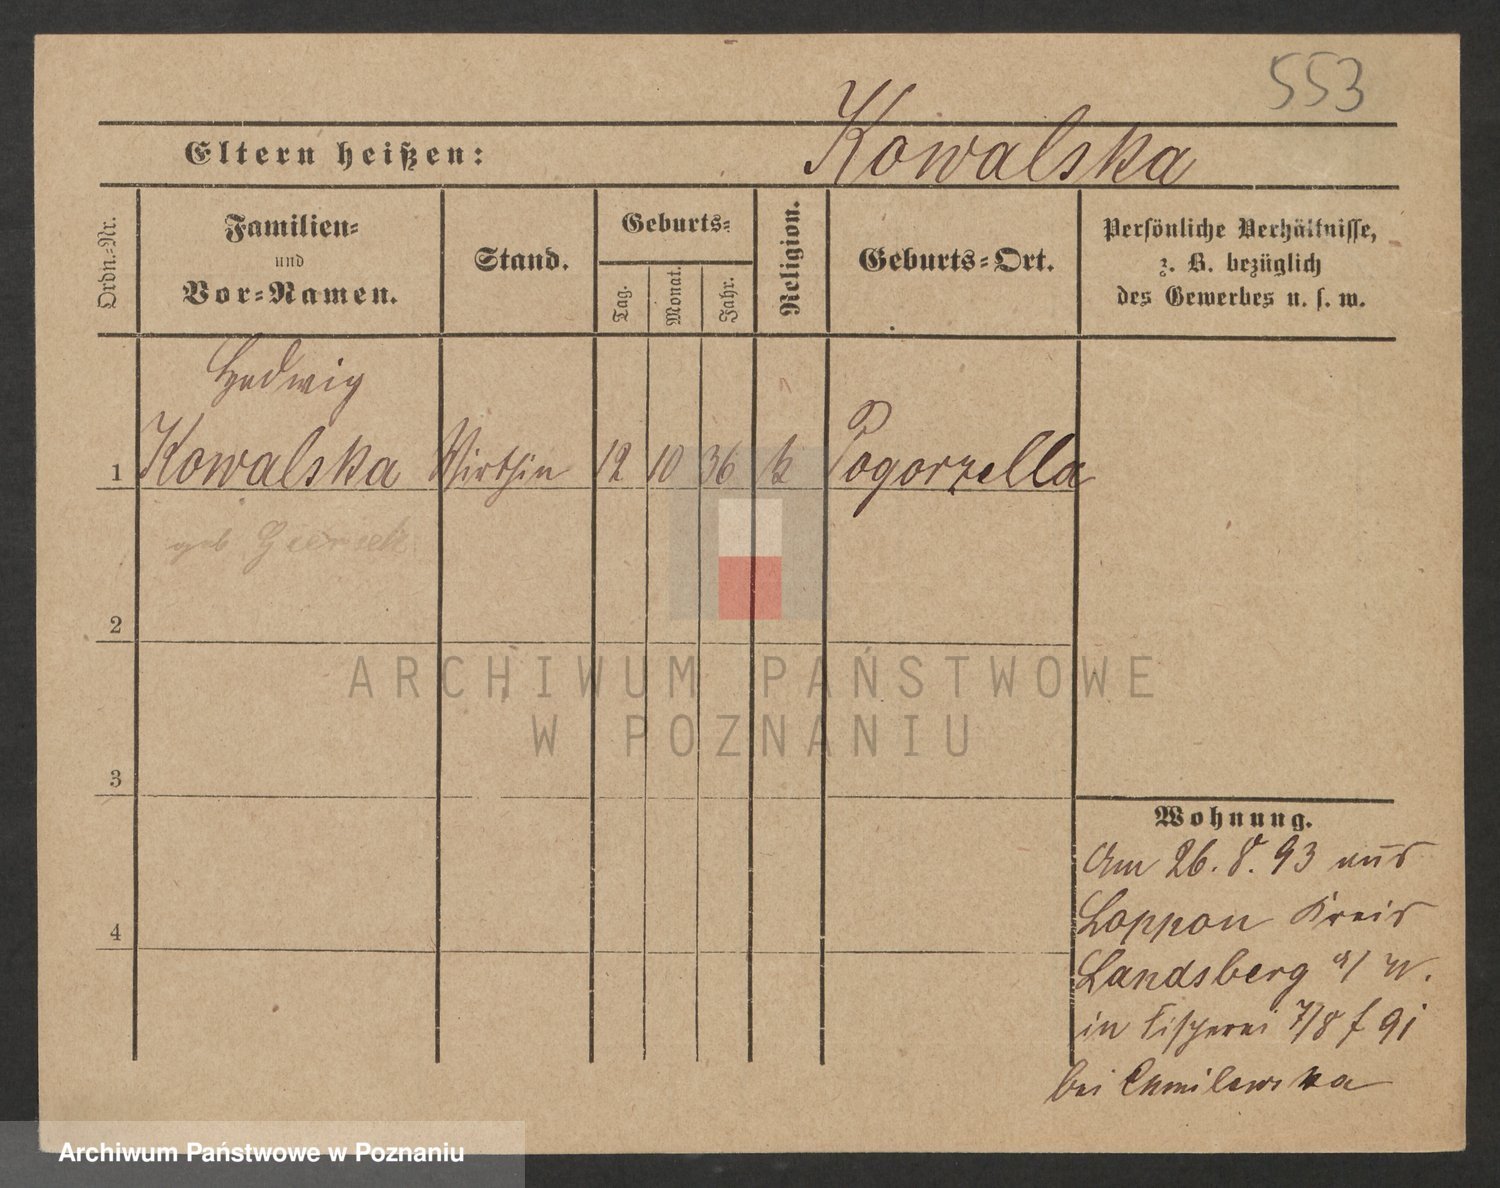 553
Eltern heißen: Kowalska
Ordn.-Nr.
Familien-
und
Vor-Namen.
Stand.
Geburts-
Tag.
Monat.
Jahr.
Religion.
Geburts-Ort.
Persönliche Verhältnisse,
z. B. bezüglich
des Gewerbes u. s. w.
Hedwig
1 Kowalska Wirthin 12 10 36 k Pogorzella
geb.
2
3
4
ARCHIWUM PAŃSTWOWE
W POZNANIU
Wohnung.
Am 26. 8. 93 aus
Loppon Kreis
Landsberg a/ W.
in Fischerei 7/8
bei Chmilewska
Archiwum Państwowe w Poznaniu